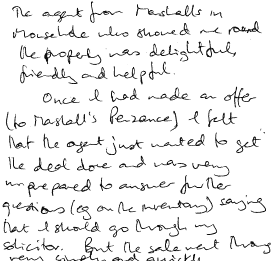 The agent from Marshalls in
Mousehole who showed me round
the property was delightful,
friendly and helpful.
Once I had made an offer
(to Marshall's Penzance) I felt
that the agent just wanted to get
the deal done and was very
unprepared to answer further
questions (eg on the inventory) saying
that I should go through my
solicitor. But the sale went through
very simply and quickly